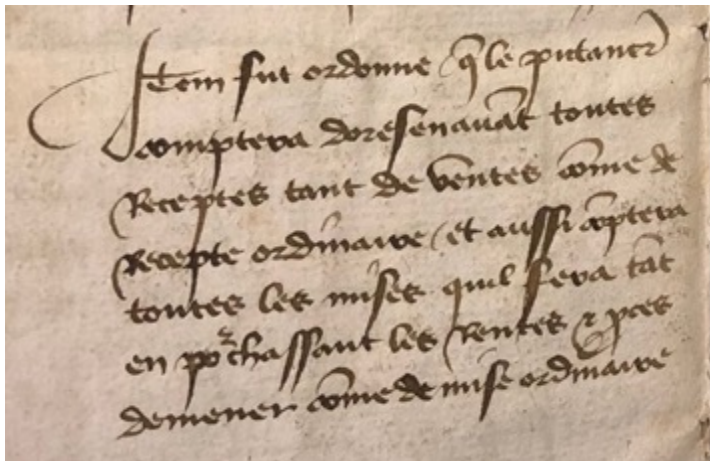 Item fut ordonne q̃ le pitancr̃
comptera doresenauãt toutes
Receptes tant de vẽntes cõme de
Recepte ordinaire / et aussi cõptera
toutes les mises quil fera tãt
en po᷑chassant les Rentes & p̱ces
demener cõme de mise ordinaire